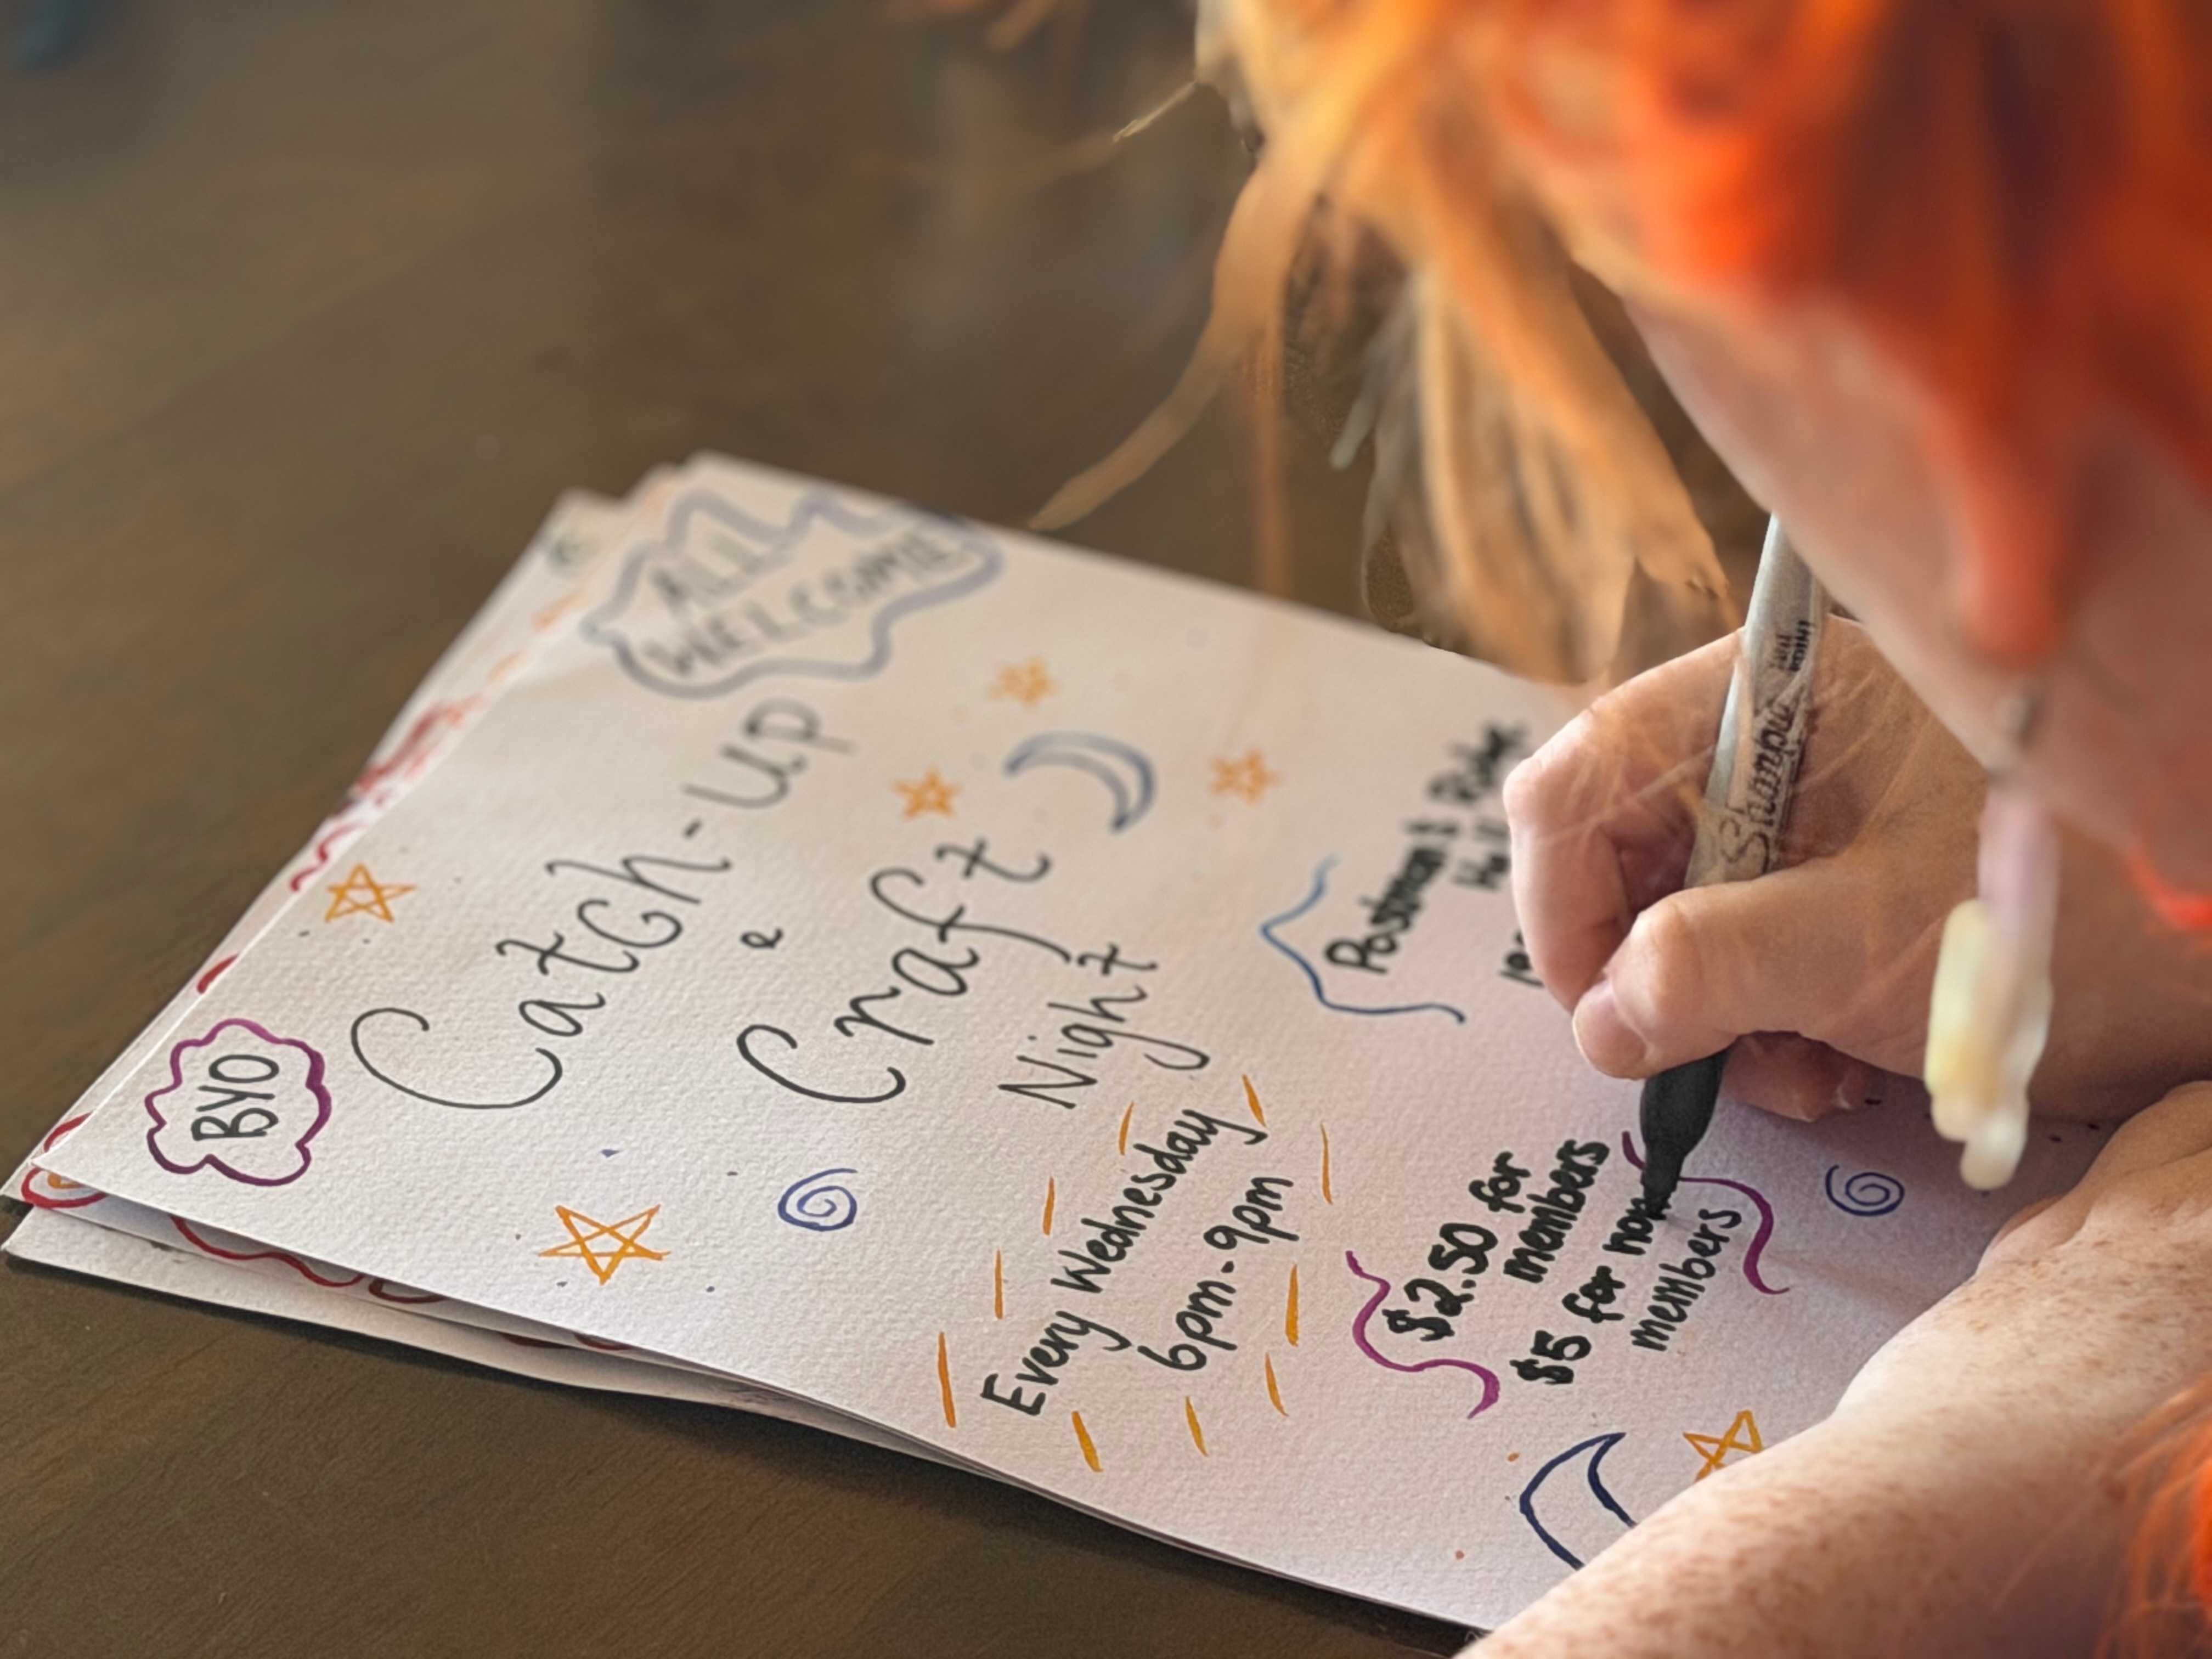 ALL
WELCOME
BYO
Catch-up
&
Craft
Night
Every Wednesday
6pm-9pm
Hall
$2.50 for
members
$5 for non
members
Sharpie